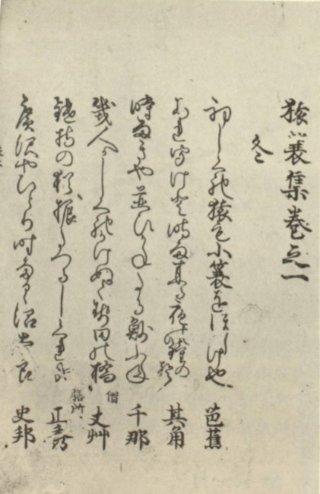 猿蓑集巻之一
冬
初しくれ猿も小蓑をほしけ也 芭蕉
あれ聞けと時雨来る夜の鐘の声 其角
時雨きや並ひかねたる魦ふね 千那
幾人かしくれかけぬく勢田の橋 僧 丈艸
鑓持の猶振たつるしくれ哉 膳所 正秀
廣沢やひとり時雨るゝ沼太良 史邦